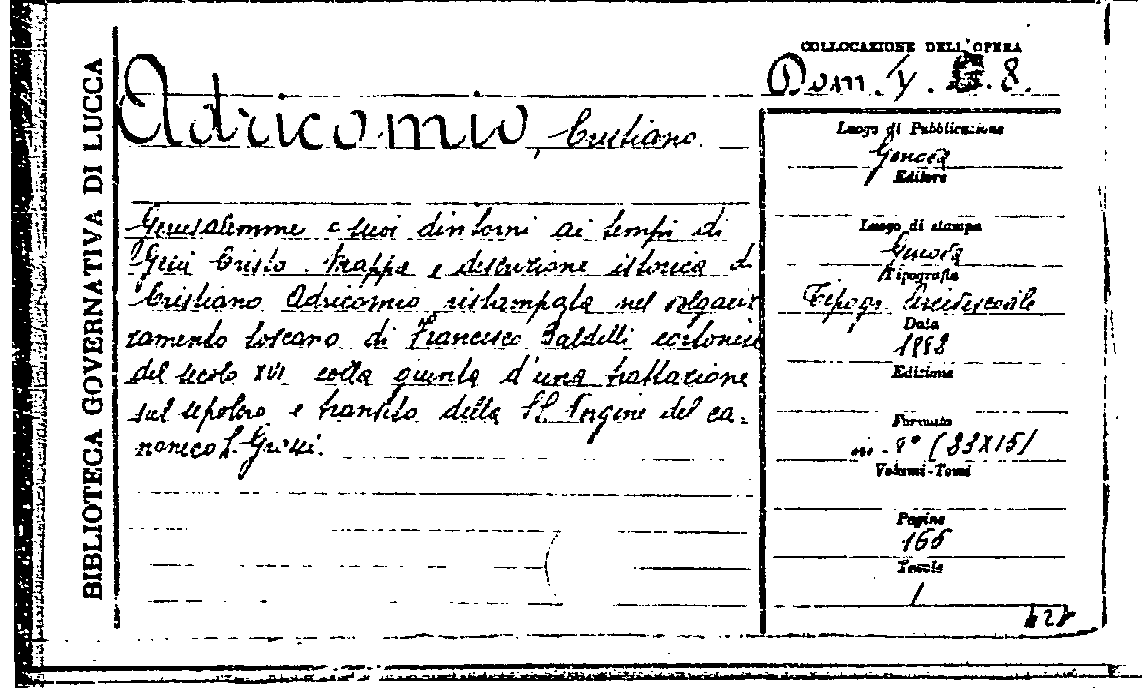 BIBLIOTECA GOVERNATIVA DI LUCCA
Adricomio, Cristiano.
Gerusalemme e suoi dintorni ai tempi di
Gesù Cristo. Mappa e descrizione istorica di
Cristiano Adricomio ristampata nel volgariz
zamento toscano di Francesco Baldelli cortonese
del secolo XVI colla giunta d'una trattazione
sul sepolcro e transito della SS. Vergine del ca-
nonico L. Grassi.
COLLOCAZIONE DELL'OPERA
Dom. IV. 8.
Luogo di Pubblicazione
Genova
Editore
Luogo di stampa
Genova
Tipografia
Tipogr. Arcivescovile
Data
1882
Edizione
Formato
in-8° (23X15)
Volumi-Tomi
Pagine
166
Tavole
1